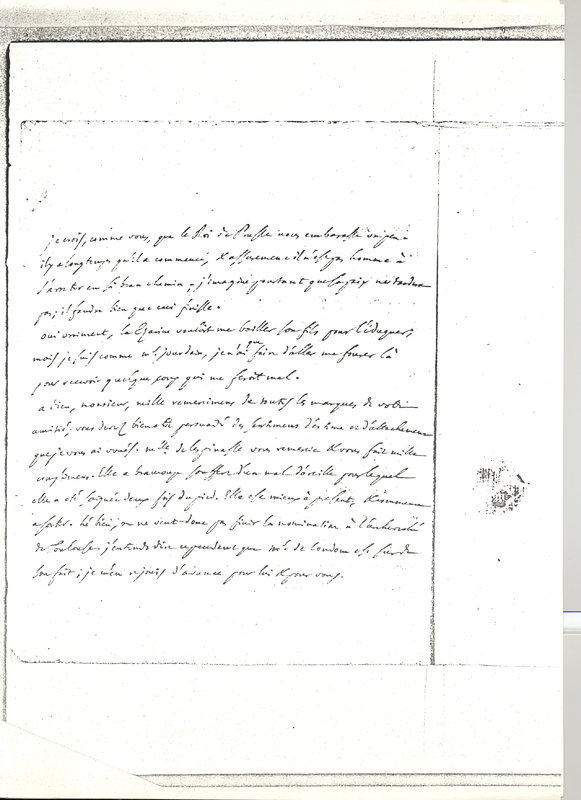 je crois, comme vous, que le Roi de Prusse nous embarasse un peu.
il y a longtemps qu'il a commencé, & assurement il n'est pas homme à
s'arreter en si beau chemin, j'imagine pourtant que la paix ne tardera
pas; il faudra bien que ceci finisse.
oui vraiment, la Czarine vouloit me bailler son fils pour l'éduquer,
mais je suis comme mr. jourdain, je n'ai que faire d'aller me fourer là
pour recevoir quelque coup qui me feroit mal.
adieu, monsieur, mille remercimens de toutes les marques de votre
amitié, vous devez bien être persuadé des sentimens d'estime et d'attachement
que je vous ai voués. mlle de lespinasse vous remercie & vous fait mille
complimens. Elle a beaucoup souffert d'un mal d'oreille pour lequel
elle a été saignée deux fois du pied. Elle est mieux à présent, & commence
à sortir. hé bien, on ne veut donc pas finir la nomination à l'archeveché
de Toulouse. j'entends dire cependant que mr. de Condom est sur de
son fait; je m'en rejouis d'avance pour lui & pour vous.